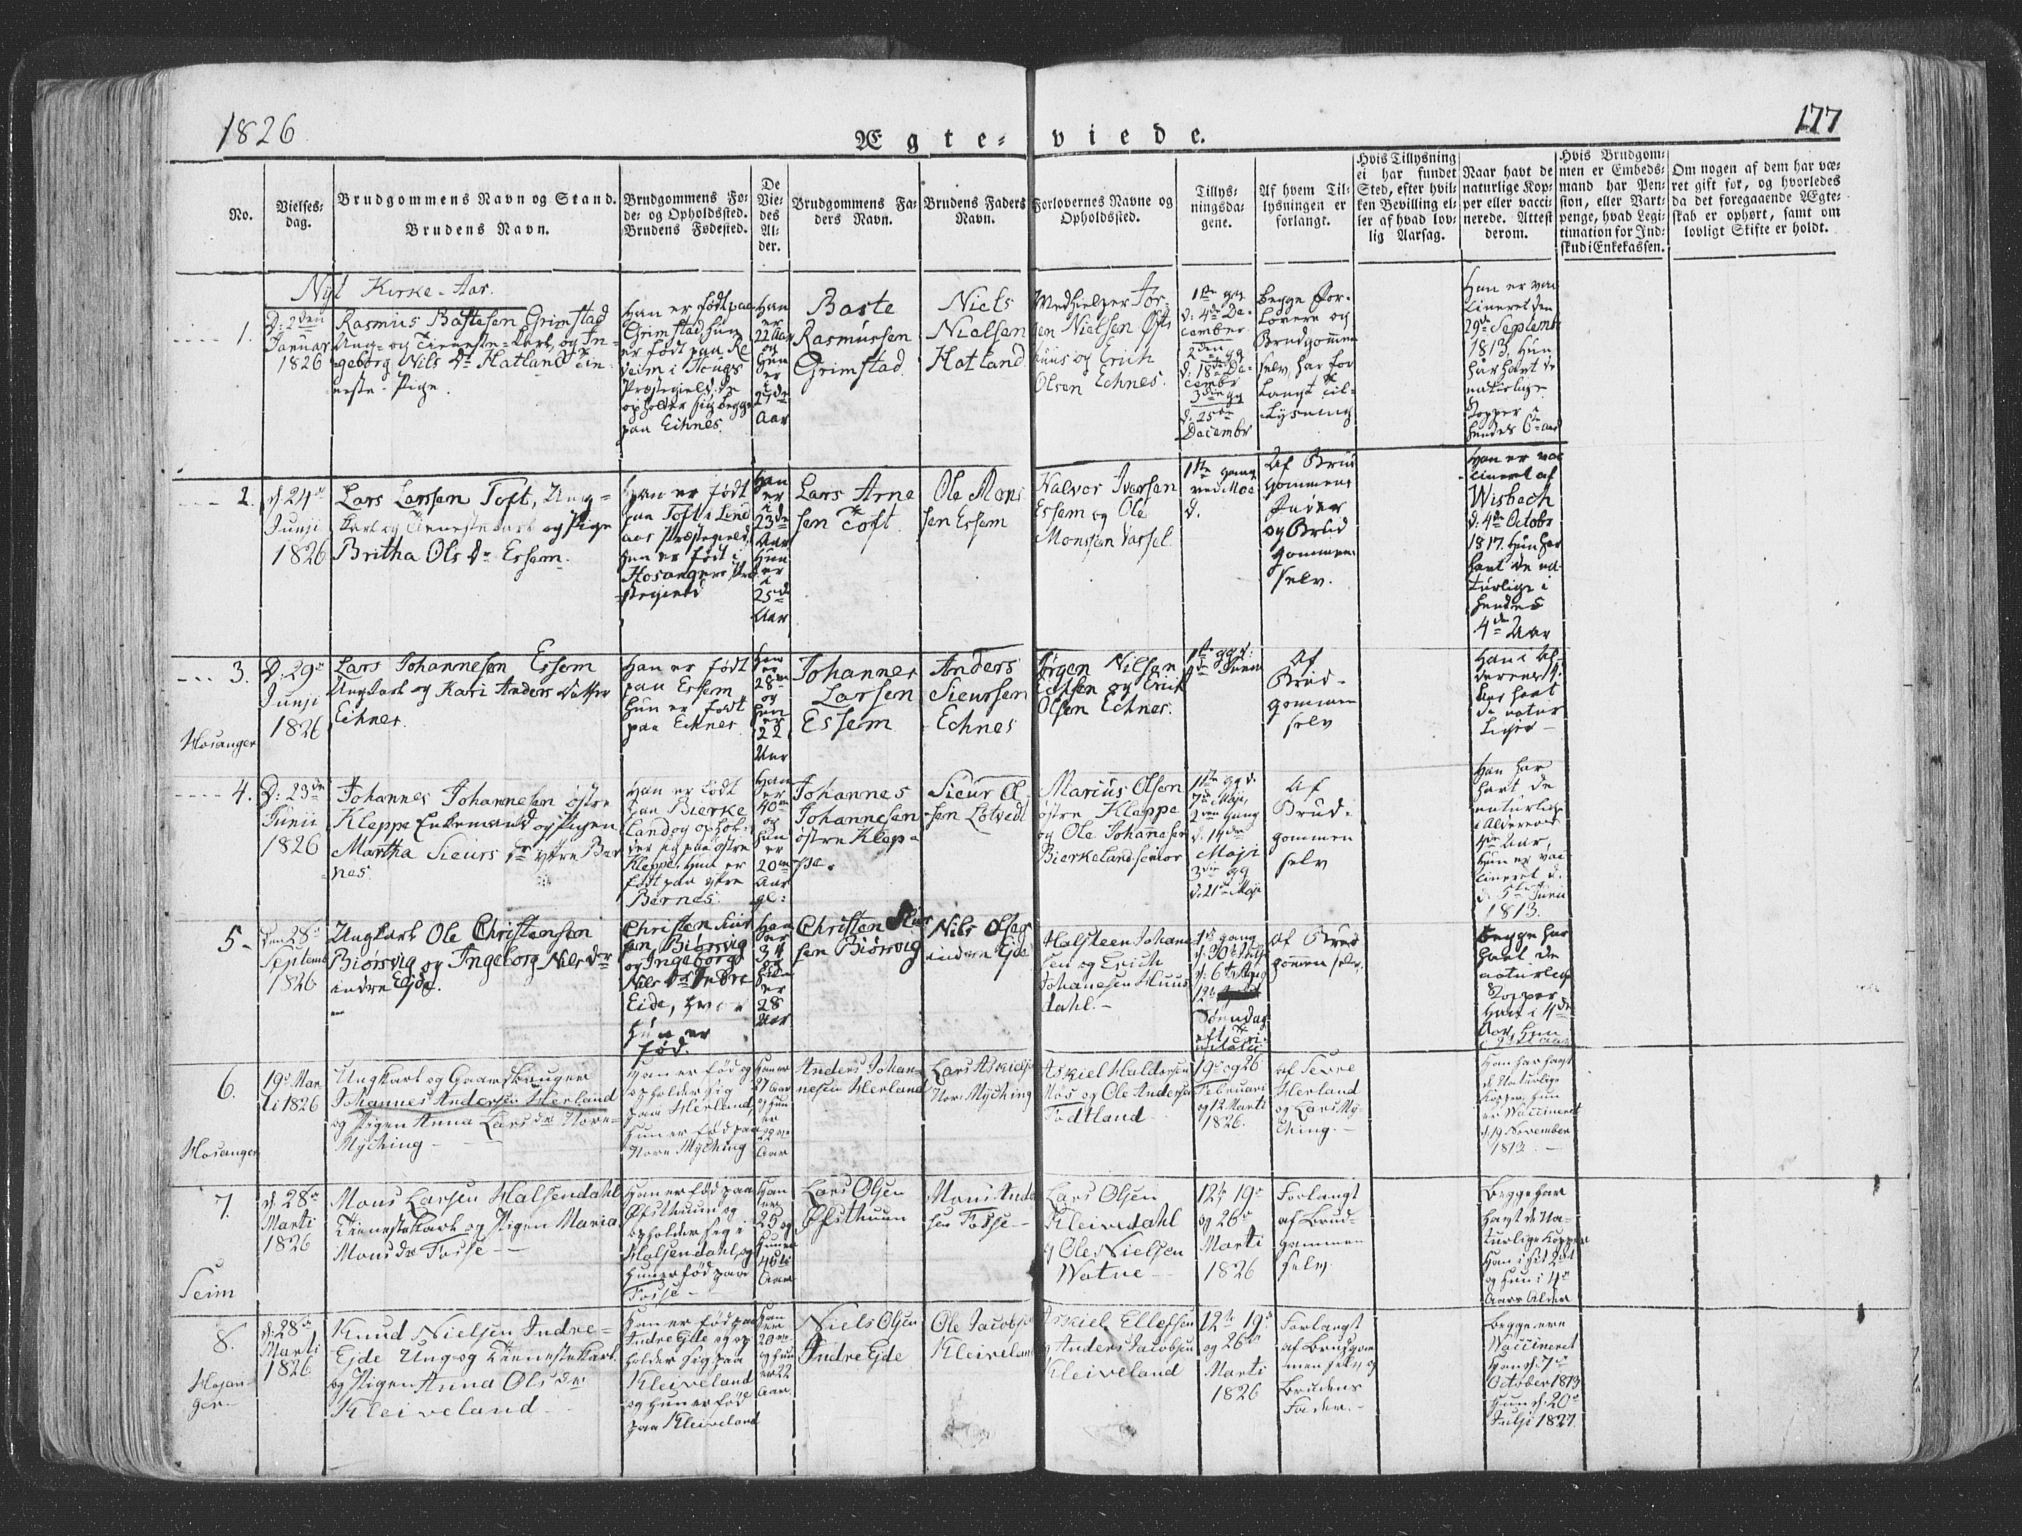 1826
Ægte-viede.
177
No.
Vielses-
dag.
Brudgommens Navn og Stand.
Brudens Navn.
Brudgommens Fø-
de- og Opholdssted.
Brudens Fødested.
De
Vie-
des
Al-
der.
Brudgommens Fa-
ders Navn.
Brudens Faders
Navn.
Forlovernes Navne og
Opholdssted.
Tillys-
ningsda-
gene.
Af hvem Til-
lysningen er
forlangt.
Hvis Tillysning
ei har fundet
Sted, efter hvil-
ken Bevilling el-
ler af hvad lov-
lig Aarsag.
Naar havt de
naturlige Kop-
per eller vacci-
nerede. Attest
derom.
Hvis Brudgom-
men er Embeds-
mand har Pen-
sion, eller Vart-
penge, hvad Legi-
timation for Ind-
skud i Enkekassen.
Om nogen af dem har væ-
ret gift før, og hvorledes
da det foregaaende Ægte-
skab er ophørt, samt om
lovligt Skifte er holdt.
Nyt Kirke-Aar.
1.
D: 2den
Januar
1826
Rasmus Bastesen Grimstad
Ung- og Tieneste-Karl, og In-
geborg Nils Dr Hatland Tie-
neste-Pige.
Han er født paa
Grimstad, hun
er født paa
i Hougs
Præstegield. De
opholder sig begge
paa Echnes.
Han
er
22 Aar
og
Hun
er
i
27de
Aar
Baste
Rasmussen
Grimstad.
Niels
Nielsen
Hatland
Medhielper Jør-
gen Nielsen
og Erich
Olsen Echnes.
1ste gg
d: 4de De-
cember
2den gg
d: 18de De-
cembr
3die gg
d: 25de
Decembr
begge For-
lovere og
Brudgommen
selv, har for-
langt Til-
lysning
Han er vac-
cineret den
29de Septembr
1813, Hun
har havt de
naturlige
Kopper i
hendes 6te Aar
2.
d. 24de
Junji
1826
Lars Larssen Toft, Ung-
karl og Tienestekarl og Pige
Britha Ols Dr Essem.
Han er født
paa Toft i Lind-
aas Præstegield,
hun er født i
Hosangers Præ-
stegield
Han
er
i
23de
Aar
Hun
er
i
25de
Aar
Lars Arne
sen Toft.
Ole Mons
sen Essem
Halvor Iversen
Essem og Ole
Monssen Vassel.
1ste gang
ved
d.
Af Brud
gommens
Fader
og Brud
gommen
selv.
Han er vac
cineret af
Wisbech
d: 4de Octobr
1817. Hun har
havt de na-
turlige i
hendes
4de Aar
3.
Hosanger
D: 29de
Junji
1826
Lars Johannesen Essem
Ungkarl og Kari Anders Datter
Echnes.
Han er født
paa Essem
hun er født
paa Echnes.
Han
er
28
og
hun
er
22
Aar
Johannes
Larsen
Essem
Anders
Sieursen
Echnes
Jørgen Nilsen
og Erik
Olsen Echnes.
1ste gg d:
Junii
Af
Brud-
gommen
selv
Han i Al
deren
Aar havt
de natur
liger -
4.
D: 23de
Junii
1826
Johannes Johannesen østre
Kleppe Enkemand og Pigen
Martha Sieurs Dr ystre Ber
nes
Han er født
paa Bierke
land og ophol-
der sig paa østre
Kleppe. Hun er
født paa ystre
Bernes.
Han
er
40
og
hun
er
20
Aar
gl:
Johannes
Johannesen
østre Klep-
pe.
Sieur Ol-
sen Lotvedt
Marius Olsen
østre Kleppe
og Ole Johannesen
Bierkeland senior
1ste gg d.
7de Maji,
2den Gang
d. 14de
Maji
3die gg
d. 21de Maji
Af
Brud-
gommen
selv
Han har
havt de
naturlige
i Alderen
Aar,
Hun er vac
cineret d.
d. 5te Junii
1813.
5-
Den 28de
Septemb
1826
Ungkarl Ole Christensen
Biørsvig og Ingeborg Nils Dr
indre Ejde.
Christen Siur
sen Biørsvig
og Ingeborg
Nils Dr Indre
Eide, hvor
hun er
fød.
Han
er
34
og
hun
er
28
Aar
Christen Siur
sen Biørsvig
Nils Olsen
indre Ejde
Halsteen Johanne
sen og Erich
Johannesen Huus
dahl.-
1ste gang
d: 30te
d: 6te Aug
12te
Søndag
eft Tri-
nitatis
af Brud
gommen selv.
begge har
havt de
naturlige
Kopper
Han i 4de
Aar, hun
6.
Hosanger
19de Mar
ti 1826
Ungkarl og Gaardbruger
Johannes Andersen Herland
og Pigen Anna Lars dr Nore-
Myching -
Han er fød og
opholder sig
paa Herland,
Hun er fød paa
Nore Myching
Han er
27 Aar
og hun
er
22
Aar
Anders Johan-
nesen Herland
Lars Askielsen
Nore Myching
Askiel Haldorsen
Mos og Ole Andersen
Fodtland -
19de og 26
Februari
og 12 Marti
1826.
af Sevre
Herland
og Lars My-
ching.-
Han har havt
de Naturlige
Kopper, hun
er Vaccineret
d. 19 November
1813.-
7.
Seim
d: 28de
Marti
1826
Mons Larsen Halsendahl
Tienestekarl og Pigen Maria
Mons dr Fosse --
Han er fød paa
Øfsthuun og
opholder sig i
Halsendahl, og
hun er fød paa
Fosse -
Han
er
25 og
Hun er
46
Aar
Lars Olsen
Øfsthuun
Mons Ande
sen Fosse -
Lars Olsen
Kleivdahl
og Ole Nielsen
Watne -
12te 19de
og 26de
Marti
1826
Forlangt
af Brud-
gommen
selv.
Begge har
havt de Na-
turlige Kopper
Han i sit 2det
og hun i 4de
Aars Alder
8.
Hosan-
ger-
d. 28de
Marti
1826
Knud Nielsen Indre-
Ejde Ung og Tienestekarl
og Pigen Anna Ols dr
Kleiveland -
Han er fød paa
Indre Ejde og op
holder sig paa
Kleiveland
og hun er fød
paa Kleiveland
Han
er
20
og hun
er 22
Aar.
Niels Olsen
Indre Ejde
Ole Jacobsen
Kleiveland
Askiel Ellefsen
og Anders Jacobsen
Kleiveland
12te 19de
og 26de
Marti
1826
Forlangt
af Brudgom
men selv og
Brudens
Fader.-
Begge ere
Waccineret
Han d. 7de
October 1813
Hun d. 20de
Julji 1827